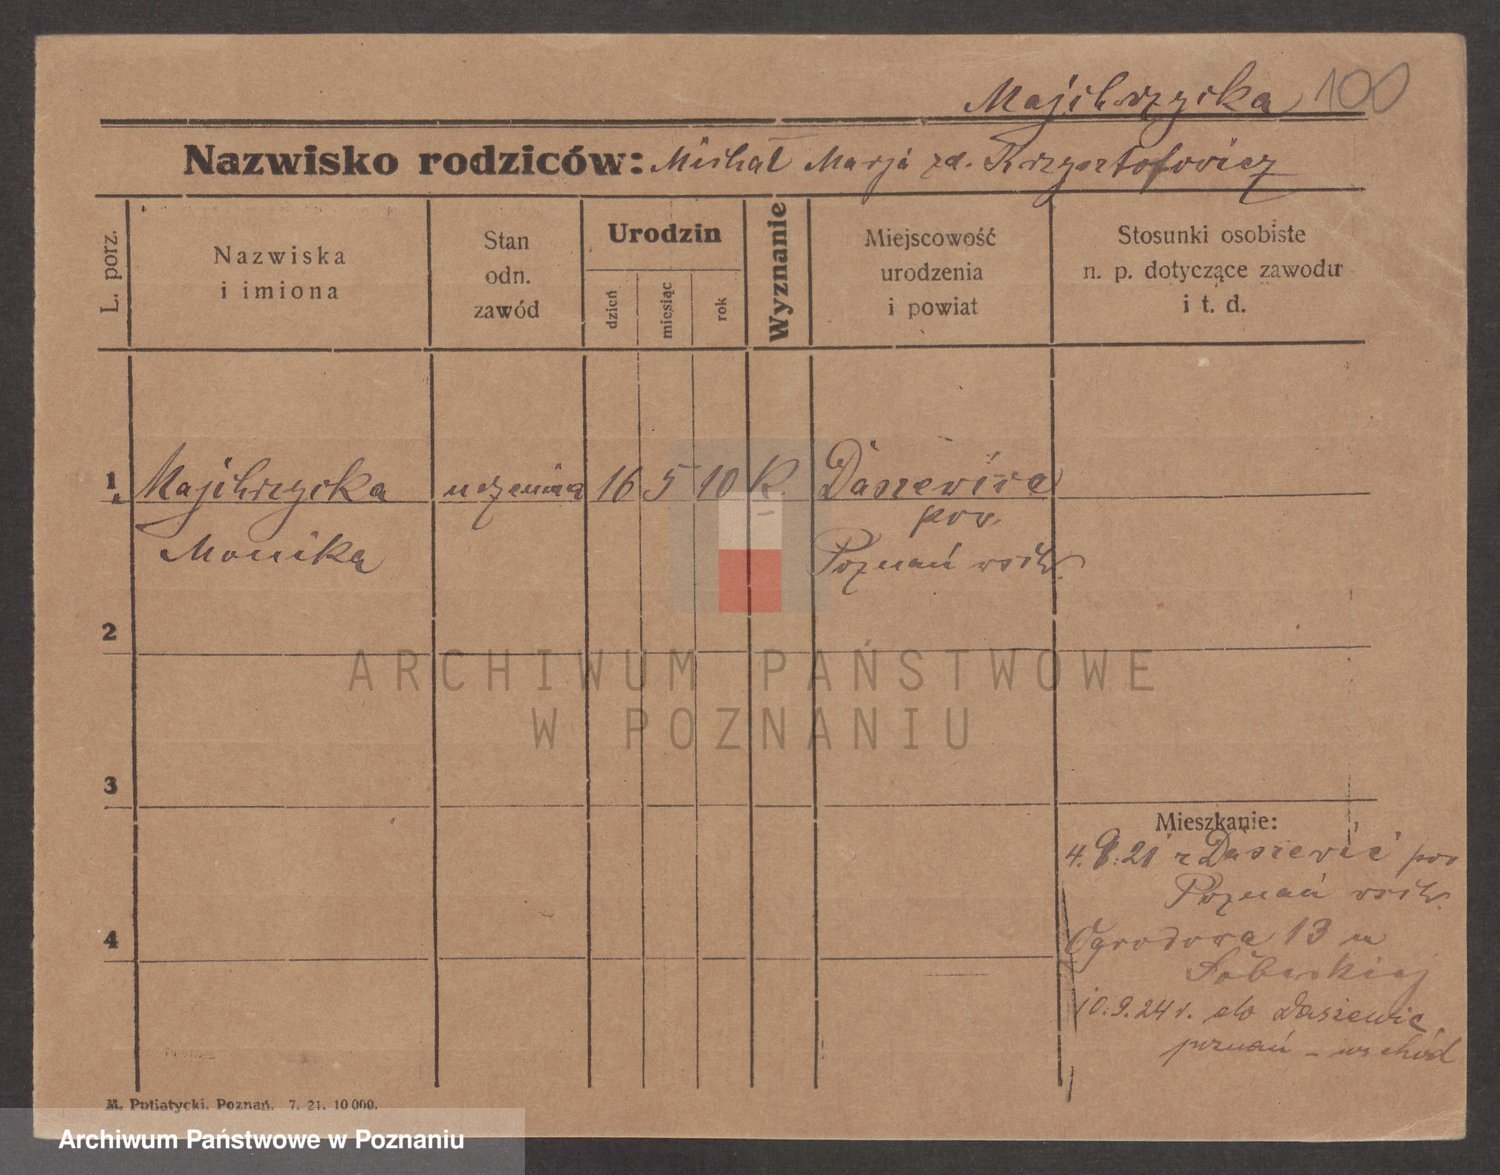 Majchrzycka 100
Nazwisko rodziców: Michał Marja zd. Krzysztofowicz
L. porz.
Nazwiska
i imiona
Stan
odn.
zawód
Urodzin
dzień
miesiąc
rok
Wyznanie
Miejscowość
urodzenia
i powiat
Stosunki osobiste
n. p. dotyczące zawodu
i t. d.
1. Majchrzycka uczenica 16 5 10 K. Daszewice
pow.
Monika Poznań wsch.
2
ARCHIWUM PAŃSTWOWE
W POZNANIU
3
Mieszkanie:
4. 8. 21 z Daszewic pow
Poznań wsch.
4
Ogrodowa 13 m
10.9.24 r. do Daszewic
poznań - wschód
M. Putiatycki, Poznań. 7. 21. 10 000.
Archiwum Państwowe w Poznaniu